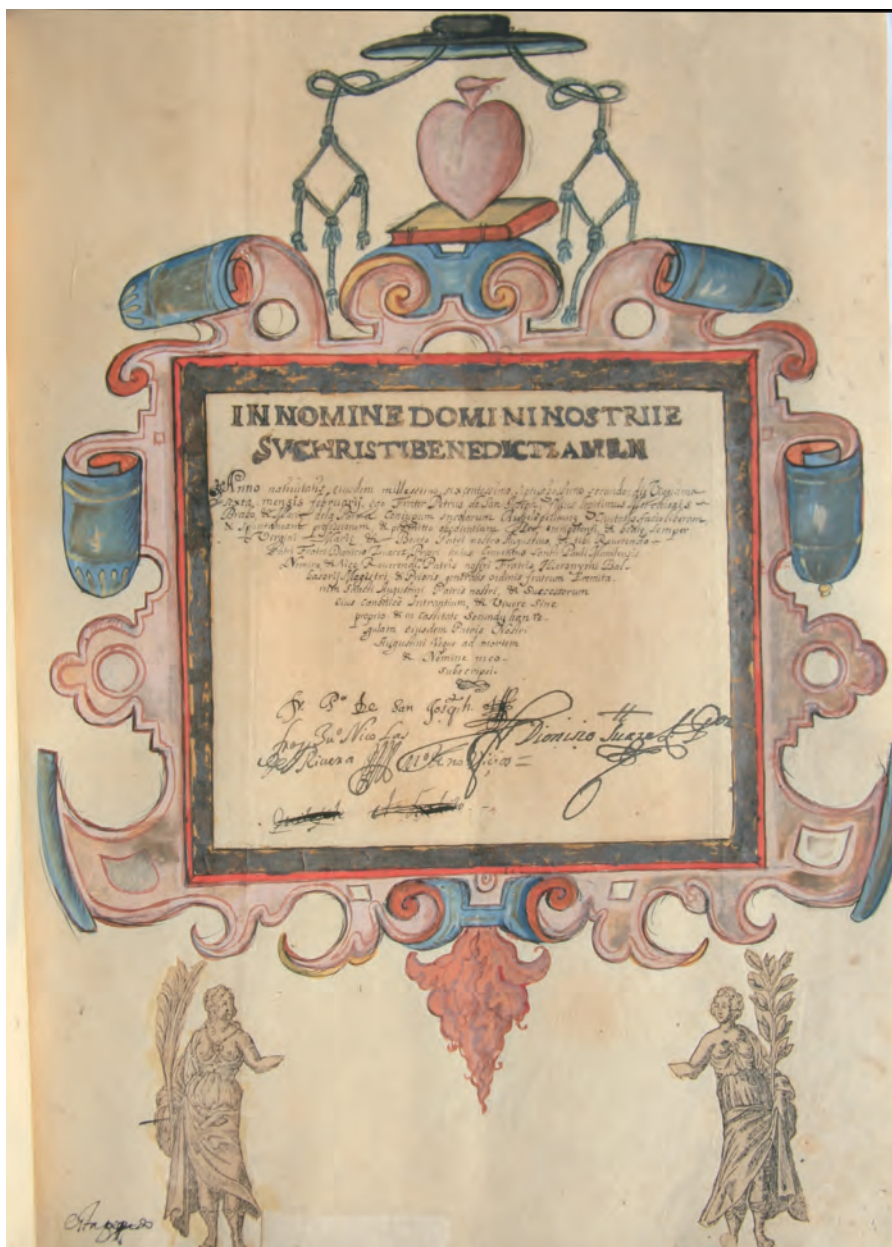 IN NOMINE DOMINI NOSTRI IE
SV CHRISTI BENEDICTI AMEN
Anno nativitatis ejusdem millessimo sexcentessimo secundo die Vigessima
sexta, mensis februarij, ego Frater Petrus de San Joseph filius legitimus
& Maria dela
& Spontaneam professionem, & promitto obedientiam Deo omnipotenti, & Beatę semper
Virgini Marię & Beato Patri nostro Augustino, & tibi Reverendo
Patri Fratri Dionisio Suarez, Priori huius Conventus Sancti Pauli Manilensis
Nomine & Vice Reverendi Patris nostri Fratris Hieronymi
Magistri, & Prioris generalis ordinis fratrum Eremita
rum Sancti Augustini Patris nostri, & Successorum
eius canonicè Intrantium, & Vivere Sine
proprio & in castitate secundũ han re
gulam ejusdem Patris Nostri
Augustini Vsque ad mortem
& Nomine meo
subscripsi.
fr. Po De San Joseph
fray Juo Nicolas Dionisio Suarez
de Rivera